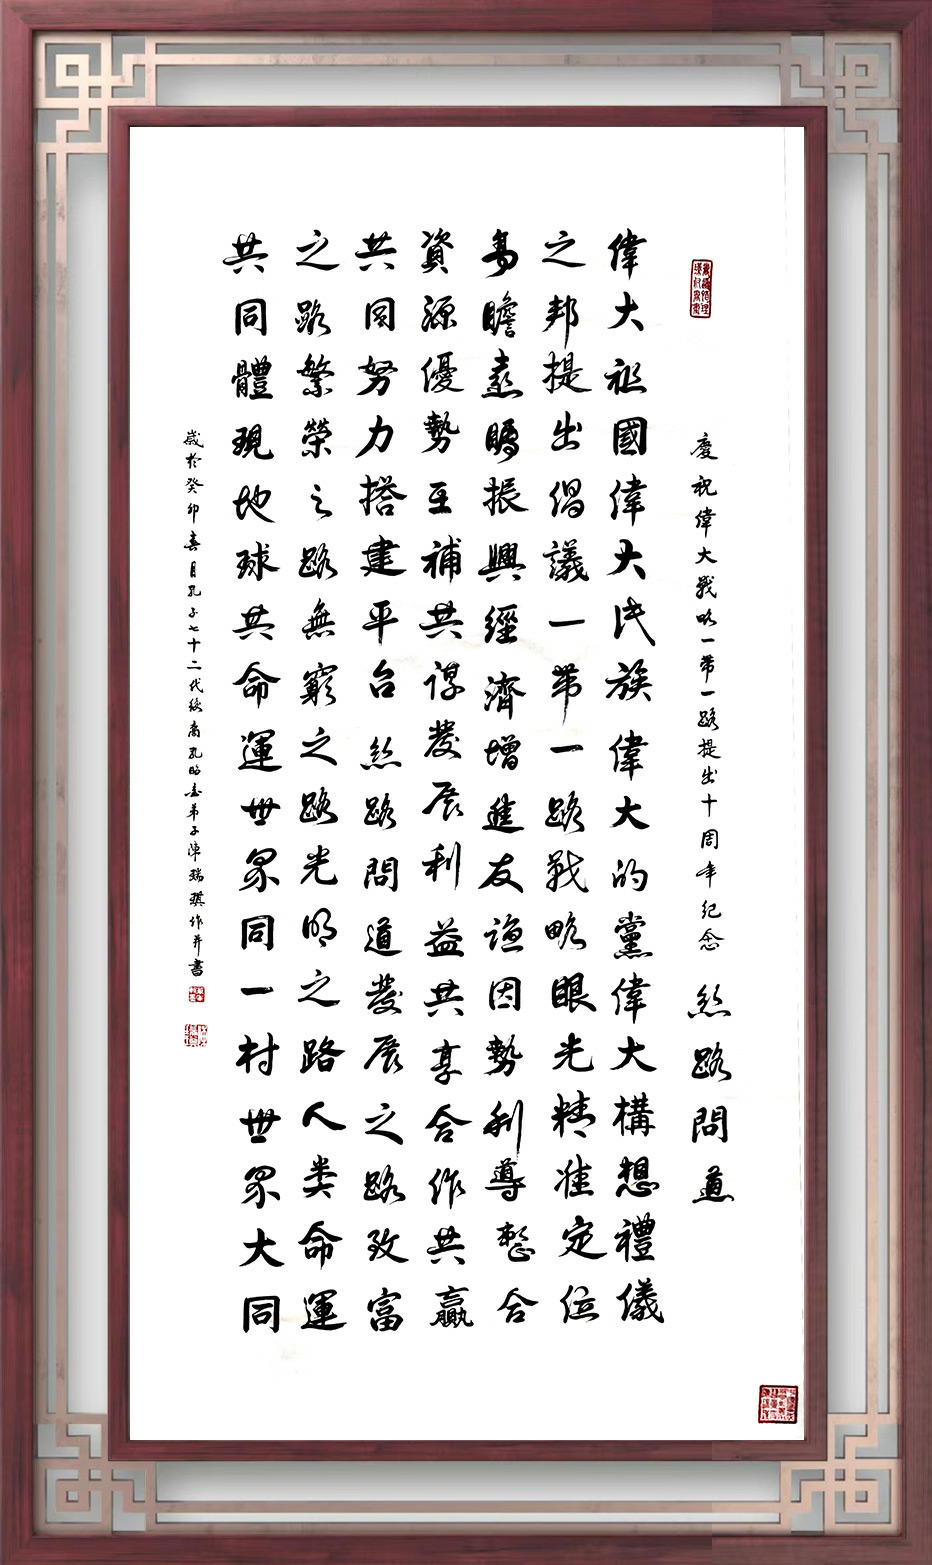 慶祝偉大戰略一帶一路提出十周年纪念 絲路問道
偉大祖國偉大民族偉大的黨偉大構想禮儀
之邦提出倡議一帶一路戰略眼光精准定位
高瞻遠矚振興經濟增進友誼因勢利導整合
資源優勢互補共谋發展利益共享合作共贏
共同努力搭建平台絲路問道發展之路致富
之路繁榮之路無窮之路光明之路人类命運
共同體現地球共命運世界同一村世界大同
歲於癸卯春月孔子七十二代後裔孔昭 弟子陳瑞琪作并書